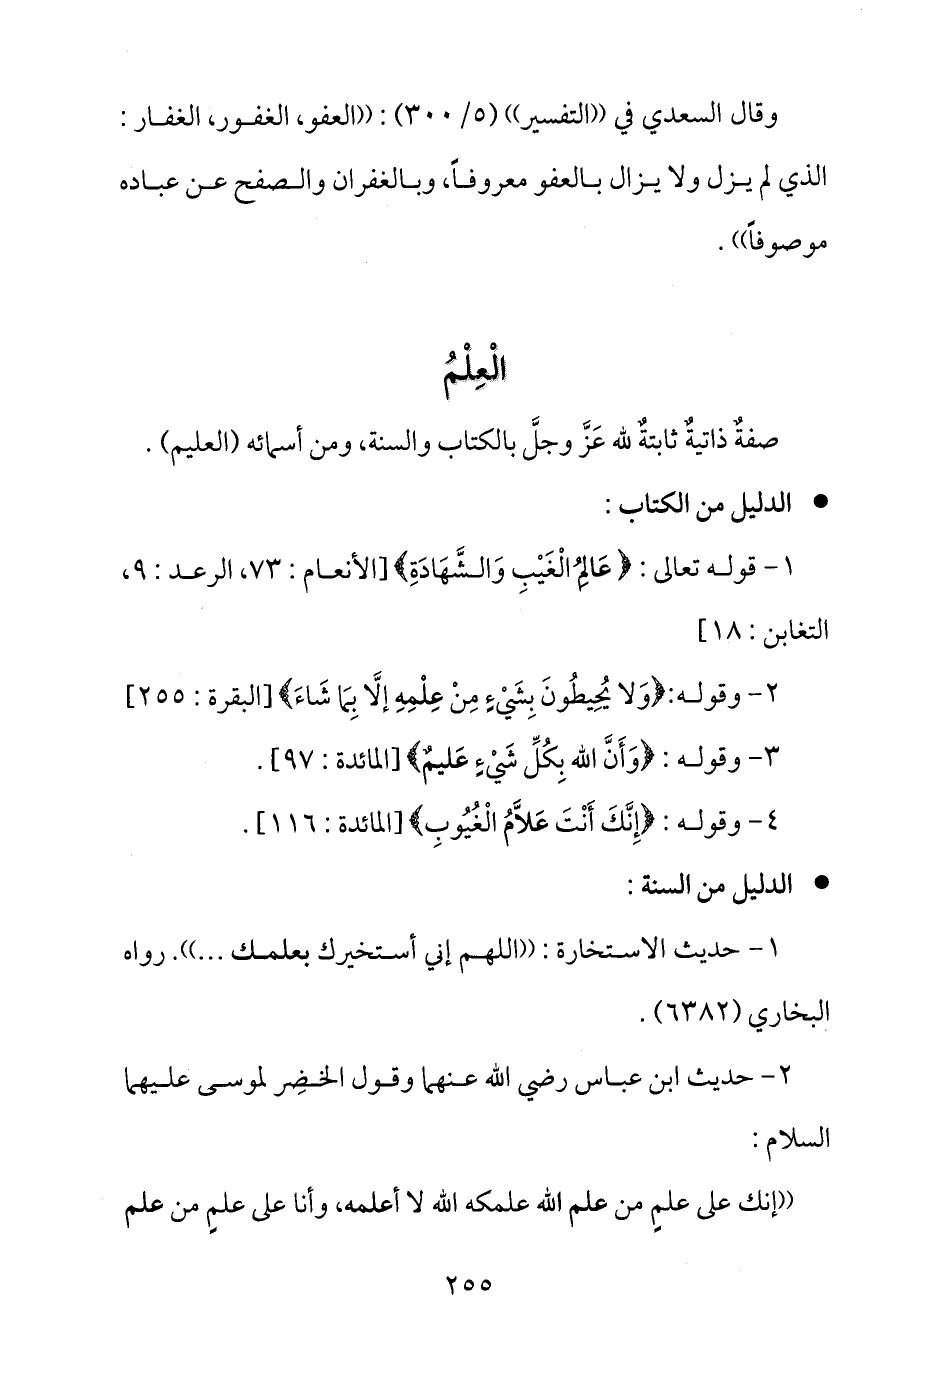 وقال السعدي في ((التفسير)) (٥/ ٣٠٠) : ((العفو، الغفـور، الغفـار :
الذي لم يـزل ولا يـزال بـالعفو معروفـاً، وبـالغفران والـصفح عـن عبـاده
موصوفاً)) .
الْعِلْمُ
صفةٌ ذاتيةٌ ثابتةٌ لله عَزَّ وجلَّ بالكتاب والسنة، ومن أسمائه (العليم) .
● الدليل من الكتاب :
١- قولـه تعالى : ﴿عَالِمُ الْغَيْبِ وَالـشَّهَادَةِ﴾ [الأنعـام : ٧٣، الرعـد : ٩،
التغابن : ١٨]
٢- وقولـه: ﴿وَلا يُحِيطُونَ بِشَيْءٍ مِنْ عِلْمِهِ إلَّا بِمَا شَاءَ﴾ [البقرة : ٢٥٥]
٣- وقولـه : ﴿وَأَنَّ الله بِكُلِّ شَيْءٍ عَليمٌ﴾ [المائدة : ٩٧] .
٤- وقولـه : ﴿إِنَّكَ أَنْتَ عَلاَّمُ الْغُيُوبِ﴾ [المائدة : ١١٦] .
● الدليل من السنة :
١- حديث الاسـتخارة : ((اللهـم إني أسـتخيرك بعلمـك ...)). رواه
البخاري (٦٣٨٢) .
٢- حديث ابن عبـاس رضي الله عـنهما وقـول الخضِر لموسـى علـيهما
السلام :
((إنك على علمٍ من علم الله علمكه الله لا أعلمه، وأنا على علمٍ من علم
٢٥٥